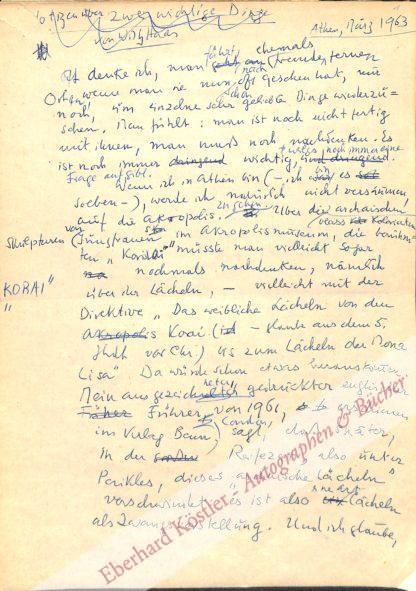 Notizen über zwei wichtige Dinge
von Willy Haas
Athen, März 1963
Oft denke ich, man fährt ehemals
Orten, wenn man sie nun oft gesehen hat, nur
noch, um einzelne sehr geliebte Dinge wiederzu-
sehen. Man fühlt: man ist noch nicht fertig
mit ihnen, man muss noch nachdenken. Es
ist noch immer dringend wichtig,
Frage aufgibt.
Wenn ich in Athen bin (– ich bin es
soeben –), werde ich natürlich nicht versäumen,
auf die Akropolis zu gehen. Über die archaischen
Skulpturen von Jungfrauen im Akropolismuseum, die berühm-
ten „Korai" müsste man vielleicht sogar
nochmals nachdenken, nämlich
KORAI"
über ihr Lächeln, – vielleicht mit der
Direktive „Das weibliche Lächeln von den
Akropolis Korai ( – Kunst aus dem 5.
Jhdt vor Chr.) bis zum Lächeln der Mona
Lisa". Da würde schon etwas herauskommen.
Mein ausgezeichneter gedruckter englischer
Führer von 1961,
im Verlag Benn, London, sagt, dass später,
in der Reifezeit, also unter
Perikles, dieses „archaische Lächeln"
verschwindet: es ist also eine Art Lächeln
als Zwangsvorstellung. Und ich glaube,
Eberhard Köstler - Autographen & Bücher